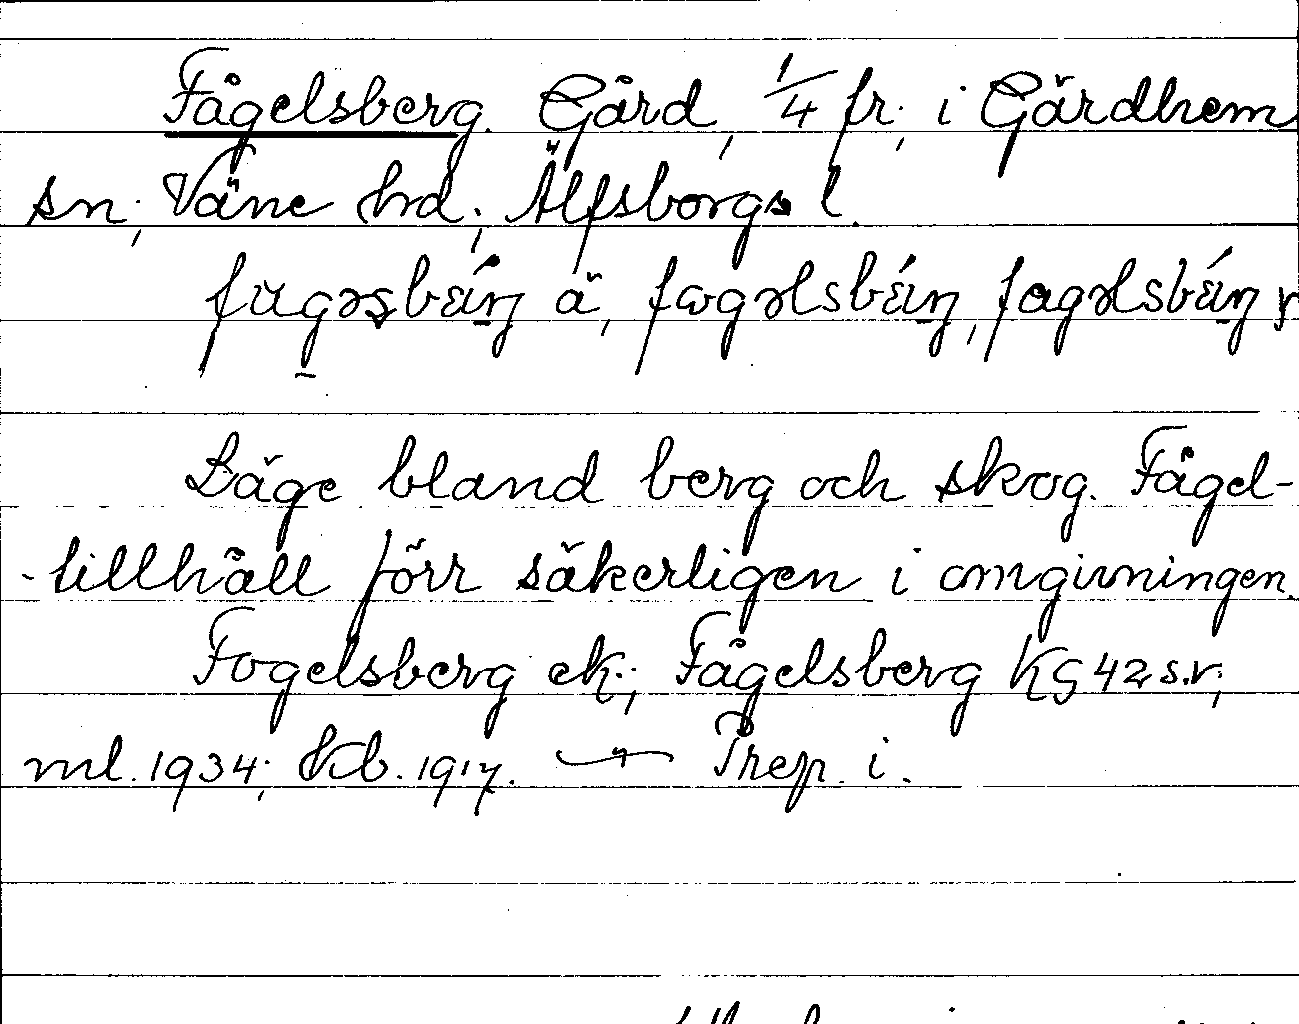 Fågelsberg. Gård, 1/4 fr., i Gärdhem
sn, Väne hd, Älfsborgs l.
ä,
Läge bland berg och skog. Fågel-
-tillhåll förr säkerligen i omgivningen.
Fogelsberg ek.; Fågelsberg KG 42 s.v.;
ml. 1934; hd. 1917. — " — Prep. i.